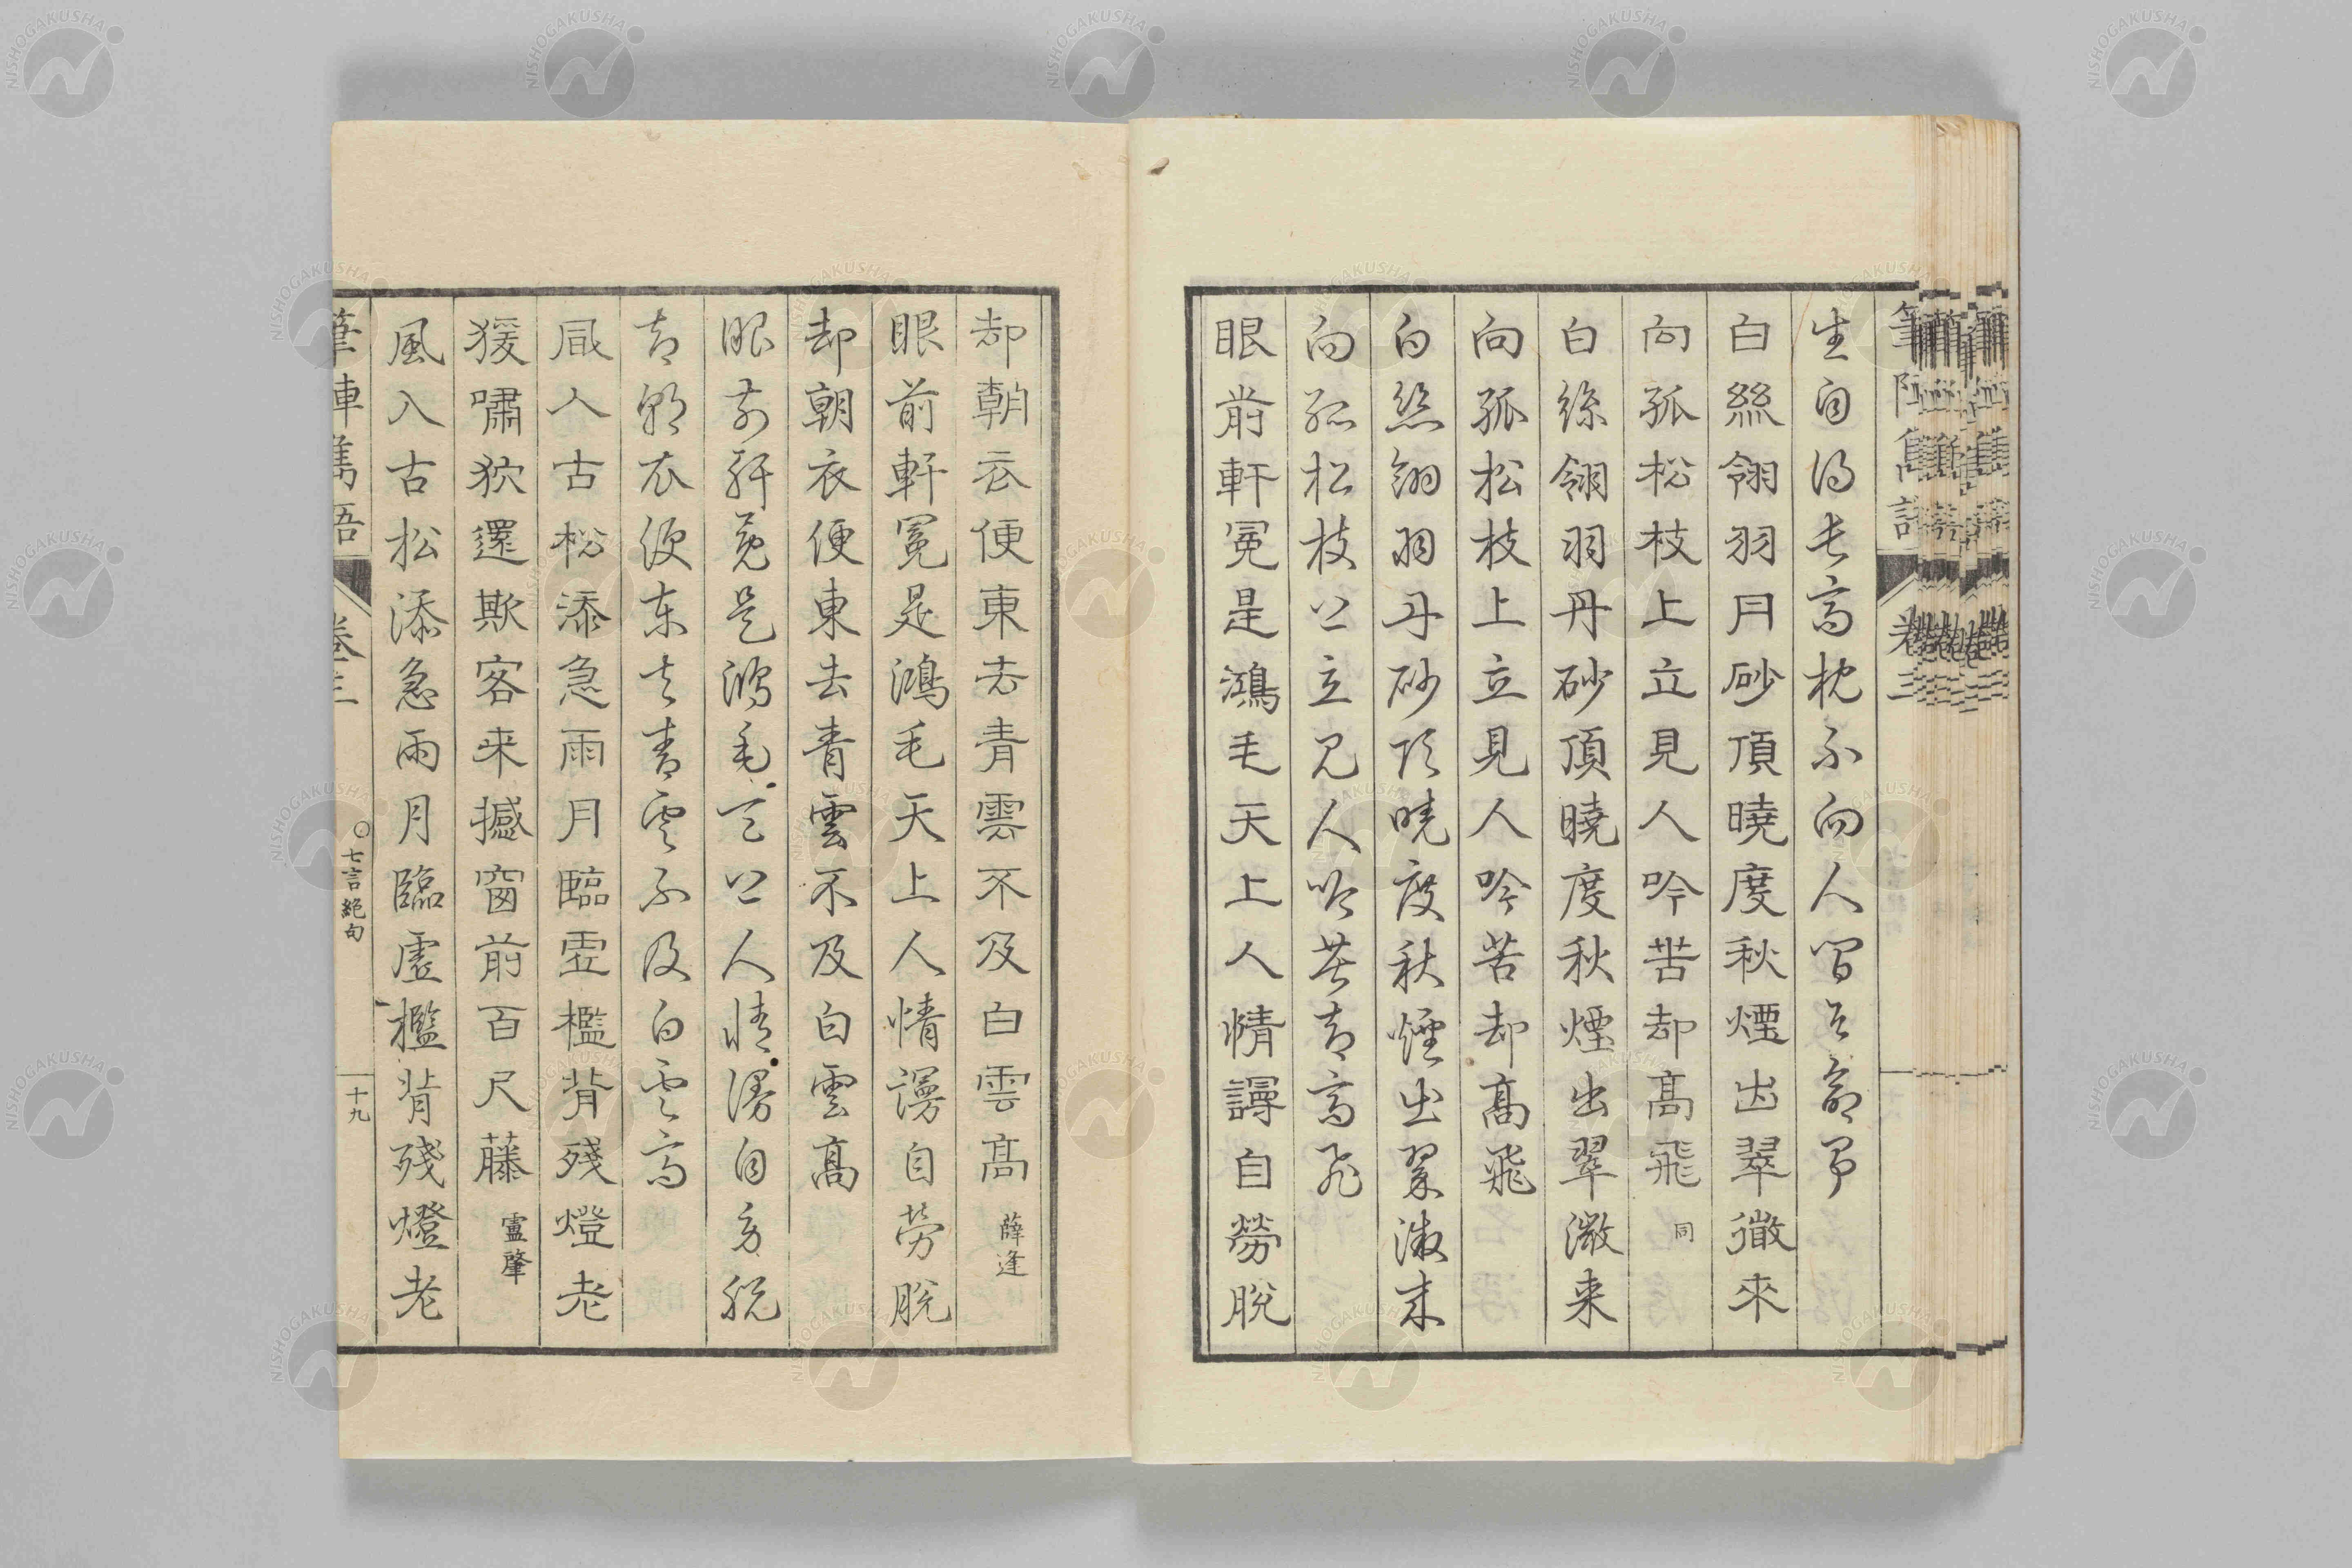 生自得長高枕不向人間與命爭
白絲翎羽丹砂頂曉度秋煙出翠微來
向孤松枝上立見人吟苦却高飛 同
白絲翎羽丹砂頂曉度秋煙出翠微来
向孤松枝上立見人吟苦却高飛
白絲翎羽丹砂頂曉度秋煙出翠微来
向孤松枝上立見人吟苦却高飛
眼前軒冕是鴻毛天上人情謾自勞脫
却朝衣便東去青雲不及白雲高 薛逢
眼前軒冕是鴻毛天上人情謾自勞脫
却朝衣便東去青雲不及白雲高
眼前軒冕是鴻毛天上人情謾自勞脫
却朝衣便東去青雲不及白雲高
風入古松添急雨月臨虛檻背殘燈老
猨嘯狖還欺客来撼窗前百尺藤 盧肇
風入古松添急雨月臨虛檻背殘燈老
筆陣雋語 卷三 〇七言絕句 十九
NISHOGAKUSHA